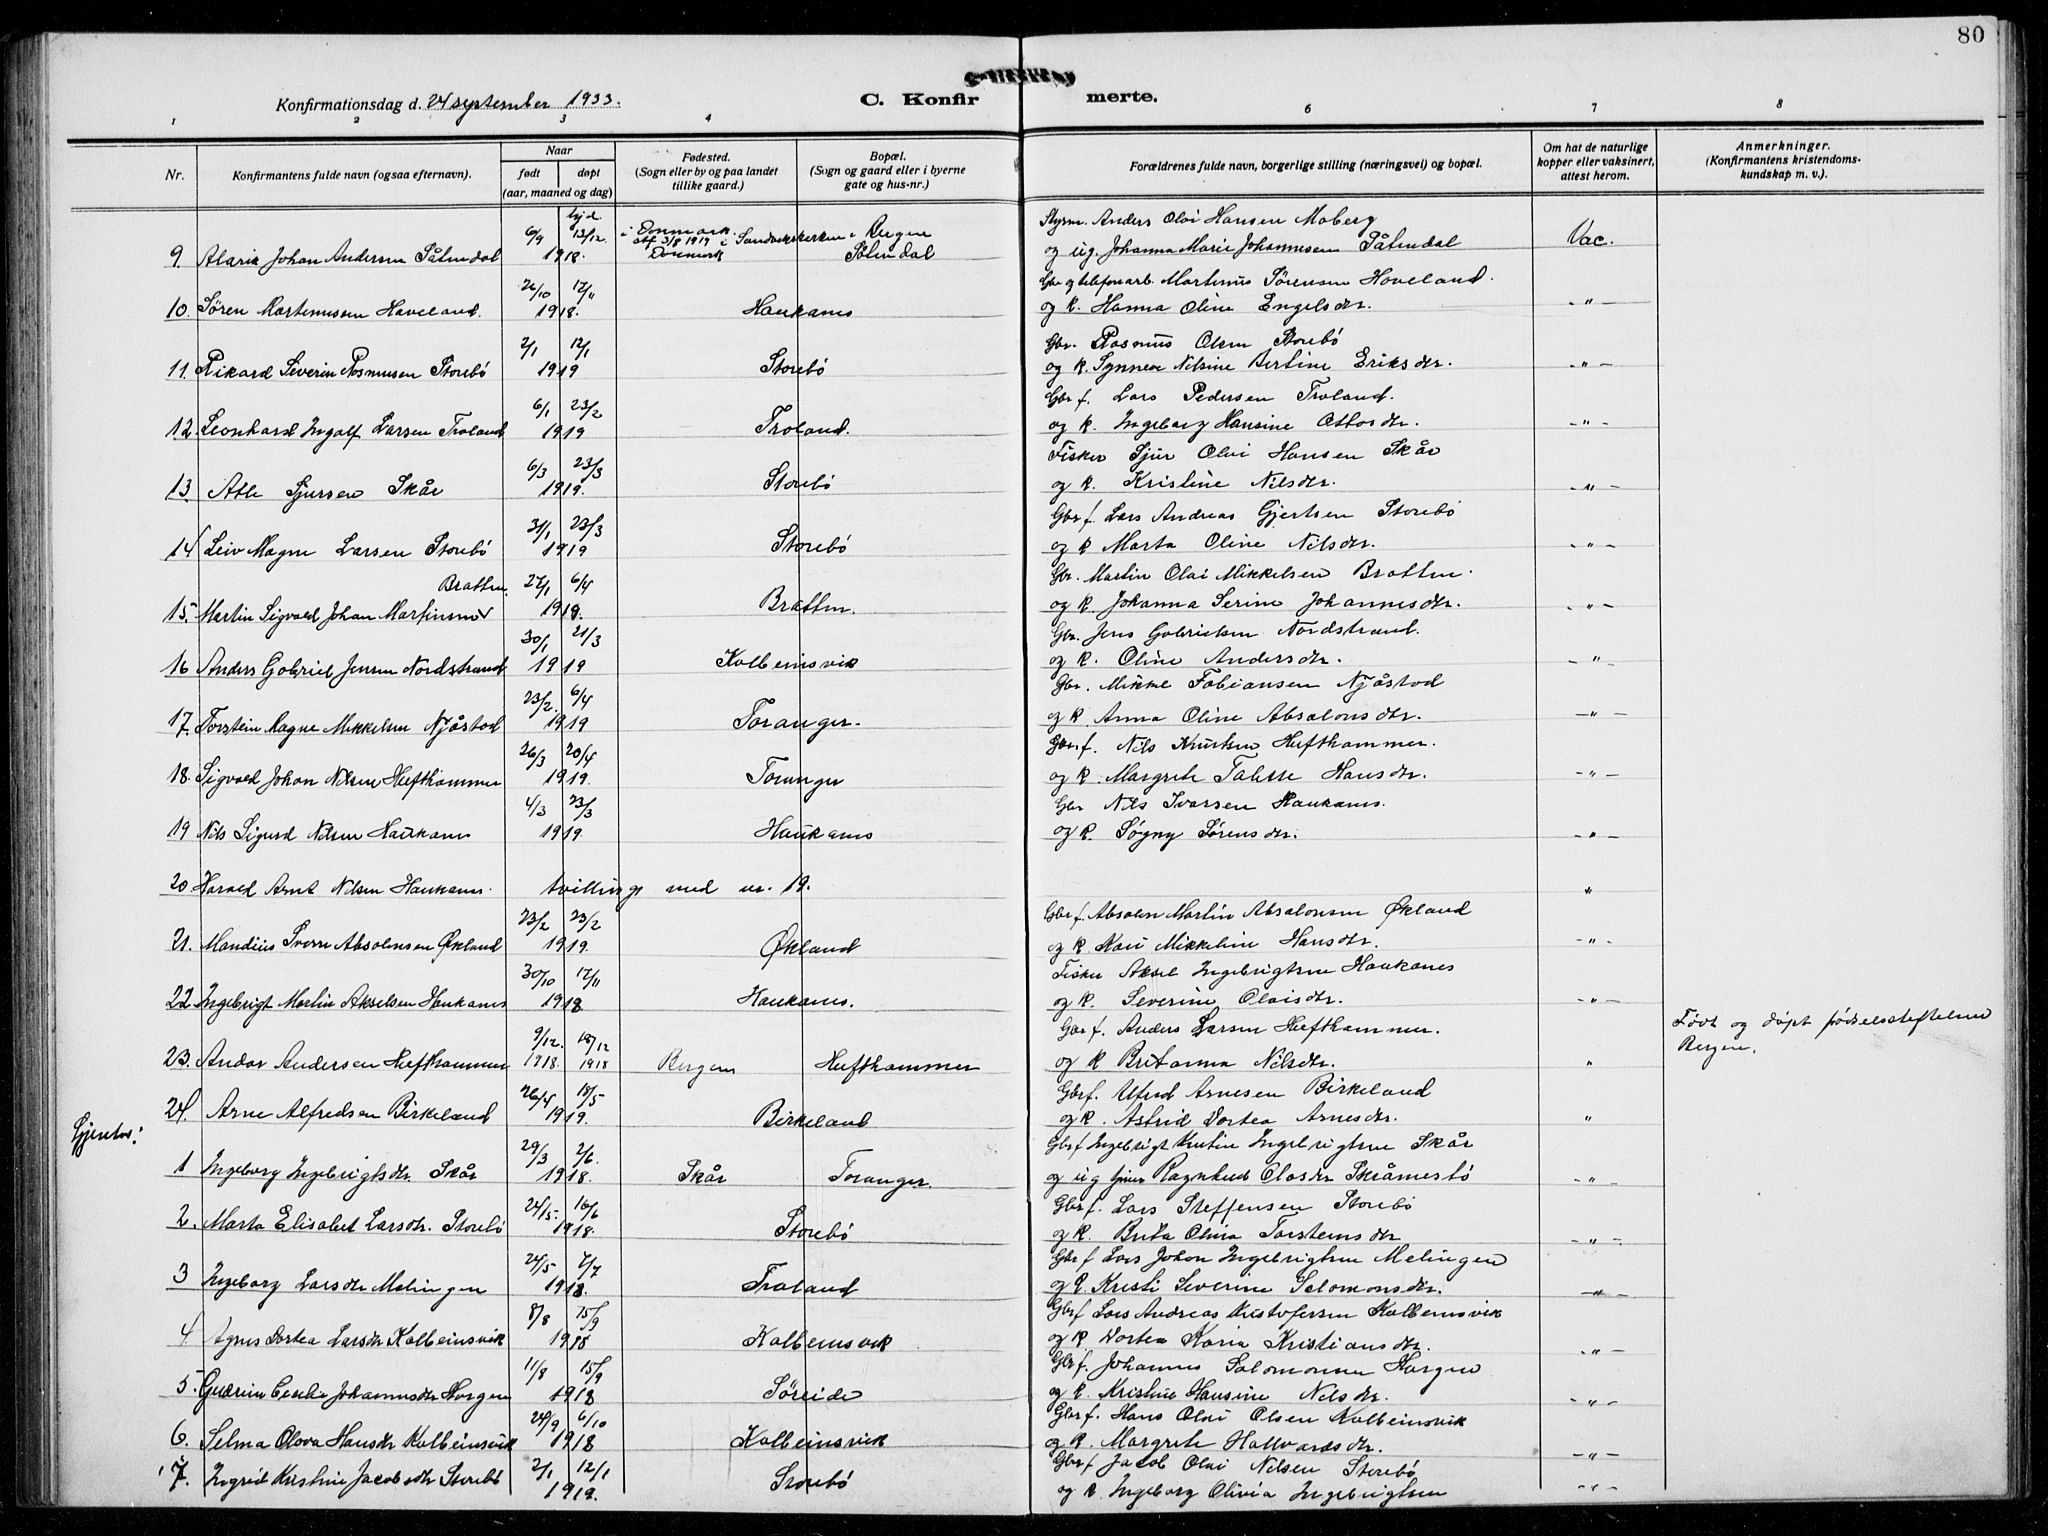 80
Konfirmationsdag d. 24 september 1933.
C. Konfirmerte.
1 2 3 4 6 7 8
Nr.
Konfirmantens fulde navn (ogsaa efternavn).
Naar
født døpt
(aar, maaned og dag)
Fødested.
(Sogn eller by og paa landet
tillike gaard.)
Bopæl.
(Sogn og gaard eller i byerne
gate og hus-nr.)
Forældrenes fulde navn, borgerlige stilling (næringsvei) og bopæl.
Om hat de naturlige
kopper eller vaksinert,
attest herom.
Anmerkninger.
(Konfirmantens kristendoms-
kundskap m. v.).
6/9 13/12 i Danmark i Bergen Styrm. Anders Olai Hansen Moberg
9. Johan Andersen Påtendal 1918. Danmark og ug. Johanna Marie Johannesen Vac.
26/10 17/11 Gbr og telefonarb. Martinus Sørensen Haveland.
10. Søren Martinusen Haveland. 1918. Haukanes og k. Hanna Oline Engelsdr. -"-
2/1 12/1 Gbr. Rasmus Olsen Storebø
11. Rikard Severin Rasmusen Storebø 1919 Storebø og k. Synneve Nilsine Bertine Eriksdr. -"-
6/1 23/2 Gbr f. Lars Pedersen Troland.
12. Leonhard Ingolf Larsen Troland 1919 Troland. og k. Ingeborg Hansine Ottosdr. -"-
6/3 23/3 Fisker Sjur Olai Hansen Skår
13. Atle Sjursen Skår 1919. Storebø og k. Kristine Nilsdr. -"-
31/1 23/3 Gbr f. Lars Andreas Gjertsen Storebø
14 Leiv Magne Larsen Storebø 1919 Storebø og k Marta Oline Nilsdr. -"-
Bratten 27/1 6/4 Gbr. Martin Olai Mikkelsen Bratten.
15. Martin Sigvald Johan Martinsen 1918. Bratten. og k. Johanna Serine Johannesdr. -"-
30/1 21/3 Gbr. Jens Gabrielsen Nordstrand.
16 Anders Gabriel Jensen Nordstrand 1919 Kolbeinsvik og k. Oline Andersdr. -"-
23/2. 6/4 Gbr. Mikkel Fabiansen Njåstad
17. Torstein Magne Mikkelsen Njåstad 1919 Toranger. og k. Anna Oline Absalonsdr. -"-
26/3 20/4 Gbr. f. Nils Knutsen Hufthammer.
18. Sigvald Johan Nilsen Hufthammer 1919. Toranger og k. Margrete Talette Hansdr. -"-
4/3 23/3 Gbr Nils Ivarsen Haukanes.
19 Nils Sigurd Nilsen Haukanes 1919. Haukanes og k. Søgny Sørensdr. -"-
20 Harald Arnt Nilsen Haukanes. tvilling med nr. 19. "
23/2 23/2 Gbr f. Absalon Martin Absalonsen Økland
21. Mandius Sverre Absalonsen Økland 1919. Økland og k Kari Mikkeline Hansdr. -"-
30/10 17/11 Fisker Aksel Ingebrigtsen Haukanes
22. Ingebrigt Martin Akselsen Haukanes 1918 Haukanes. og k. Severine Olaisdr. -"-
9/12. 18/12 Gbr f. Anders Larsen Hufthammer. Født og døpt fødselsstiftelsen
23. Andor Andersen Hufthammer 1918. 1918 Bergen Hufthammer og k Britanna Nilsdr. " Bergen.
26/4 18/5 Gbr f. Alfred Arnesen Birkeland
24. Arne Alfredsen Birkeland 1919. Birkeland og k. Astrid Dortea Arnesdr. "
Gjenter:
29/3 2/6. Gbr f Ingebrigt Kristian Ingebrigtsen Skår
1 Ingeborg Ingebrigtsdr. Skår 1918. Skår Toranger. og ug Ragnhild Olasdr Skråmestø -"-
24/5. 16/6 Gbr f. Lars Steffensen Storebø
2. Marta Elisabet Larsdr. Storebø 1918. Storebø og k. Brita Olina Torsteinsdr -"-
24/5 7/7 Gbr f Lars Johan Ingebrigtsen Melingen
3 Ingeborg Larsdr Melingen 1918. Troland og k. Kristi Severine Salomonsdr. -"-
8/8 15/9 Gbr f Lars Andreas Kristofersen Kolbeinsvik
4 Agnes Dortea Larsdr Kolbeinsvik 1918 Kolbeinsvik og k. Dortea Karia Kristiansdr. -"-
11/8 15/9 Gbr f. Johannes Salomonsen Horgen
5. Gudrun Cecilie Johannesdr Horgen 1918 Søreide og k. Kristine Hansine Nilsdr. -"-
24/9 6/10 Gbr f. Hans Olai Olsen Kolbeinsvik
6. Selma Olava Hansdr Kolbeinsvik 1918 Kolbeinsvik og k. Margrete Hallvardsdr. -"-
2/1 12/1 Gbr f Jacob Olai Nilsen Storebø
7. Ingrid Kristine Jacobsdr Storebø 1919. Storebø og k. Ingeborg Olivia Ingebrigtsen -"-